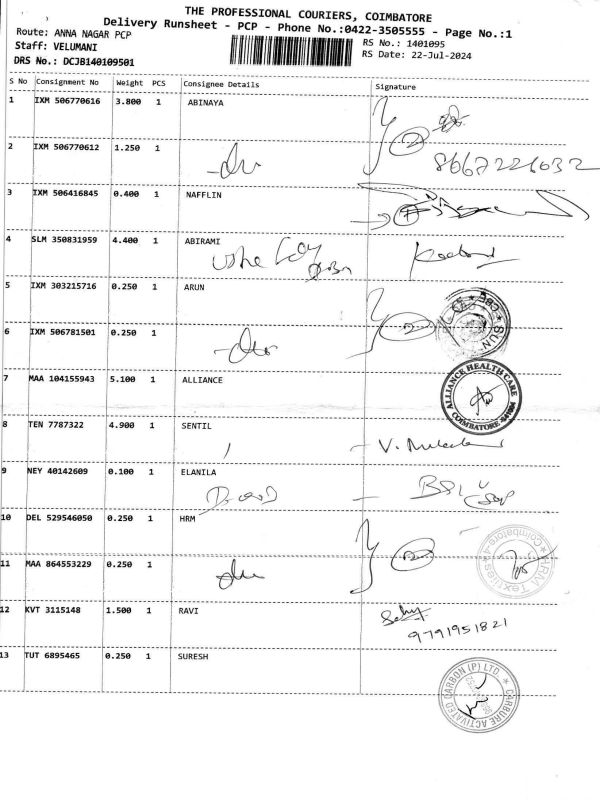 THE PROFESSIONAL COURIERS, COIMBATORE
Delivery Runsheet - PCP - Phone No.:0422-3505555 - Page No.:1
Route: ANNA NAGAR PCP
RS No.: 1401095
Staff: VELUMANI
RS Date: 22-Jul-2024
DRS No.: DCJB140109501
S No Consignment No Weight PCS Consignee Details Signature
1 IXM 506770616 3.800 1 ABINAYA
2 IXM 506770612 1.250 1
8667226032
3 IXM 506416845 0.400 1 NAFFLIN
4 SLM 350831959 4.400 1 ABIRAMI
5 IXM 303215716 0.250 1 ARUN
6 IXM 506781501 0.250 1
7 MAA 104155943 5.100 1 ALLIANCE
ALLIANCE HEALTH CARE
COIMBATORE
8 TEN 7787322 4.900 1 SENTIL
9 NEY 40142609 0.100 1 ELANILA
10 DEL 529546050 0.250 1 HRM
HRM Textiles
Coimbatore-4
11 MAA 864553229 0.250 1
12 KVT 3115148 1.500 1 RAVI
9791951821
13 TUT 6895465 0.250 1 SURESH
CARBURE ACTIVATED CARBON (P) LTD